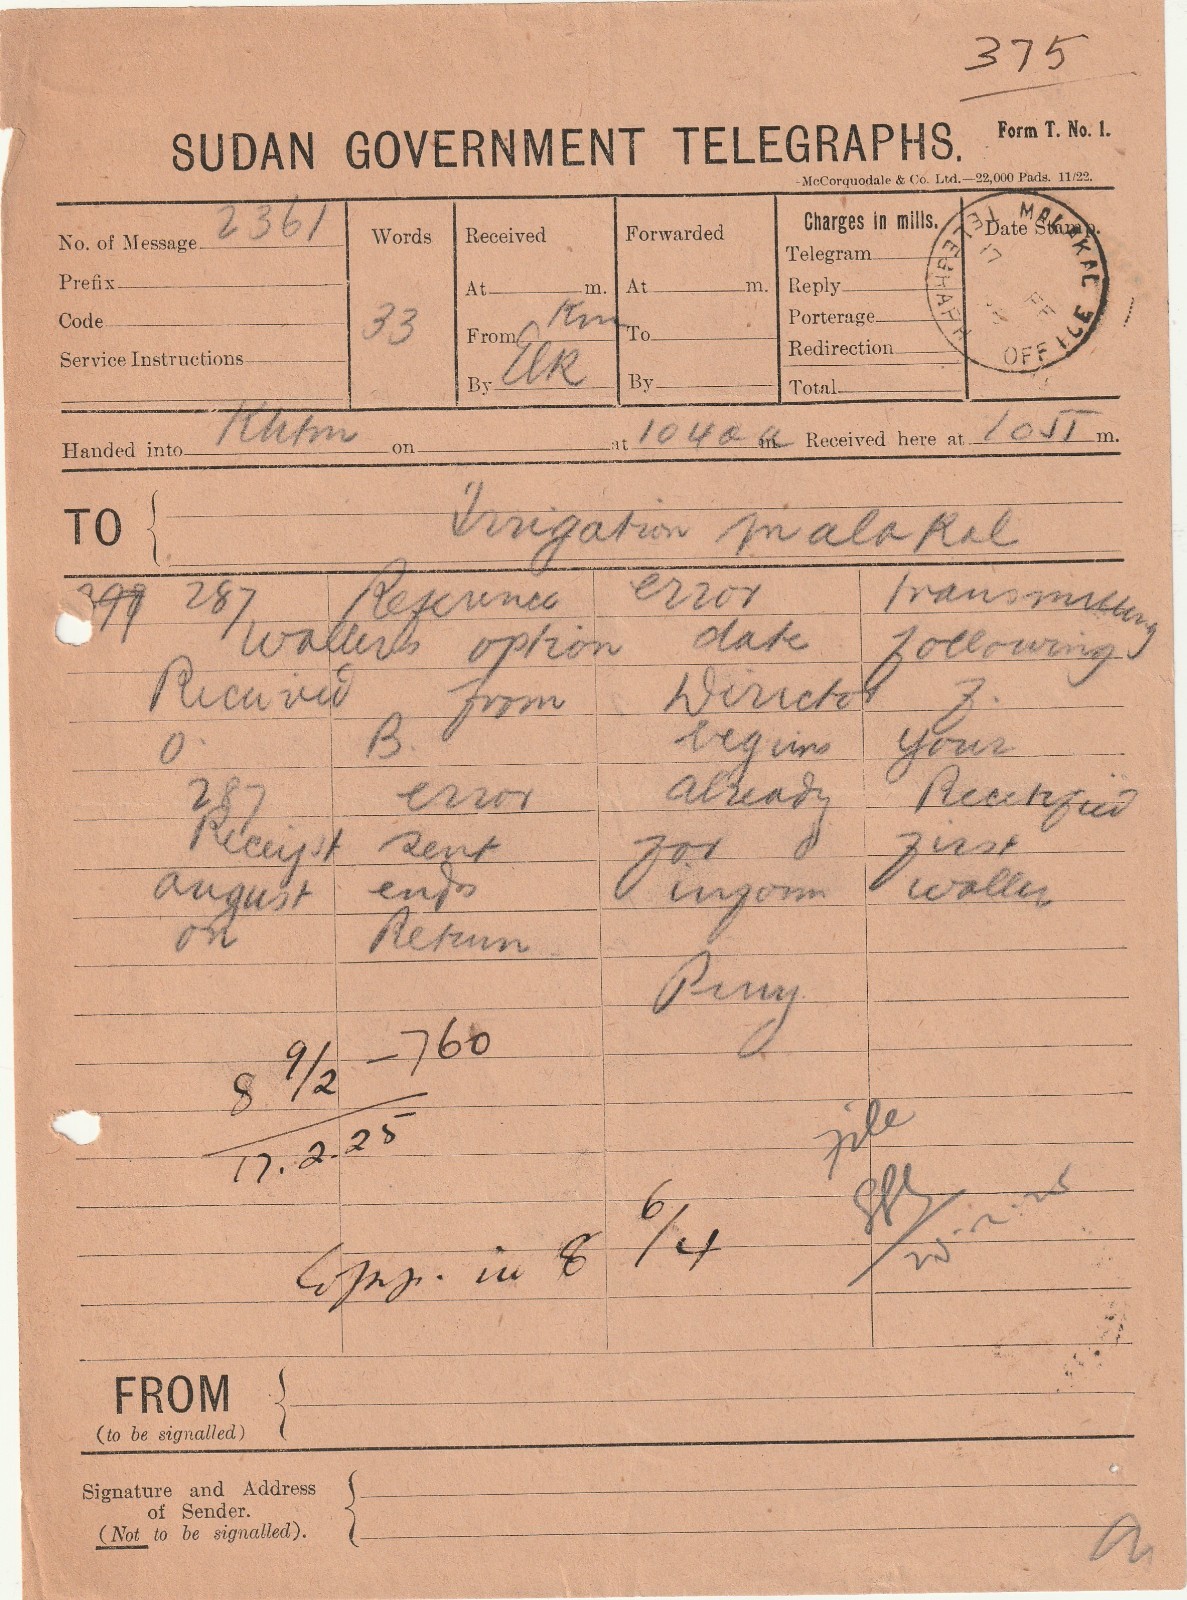 375
SUDAN GOVERNMENT TELEGRAPHS.
Form T. No. 1.
McCorquodale & Co. Ltd.—22,000 Pads. 11/22.
No. of Message 2361
Prefix
Code
Service Instructions
Words
33
Received
At m.
From Km
By
Forwarded
At m.
To
By
Charges in mills.
Telegram
Reply
Porterage
Redirection
Total
Date Stamp.
MALAKAL TELEGRAPH OFFICE
17 FE
Handed into Khtm on at 1040 a m. Received here at 1051 m.
TO Irrigation Malakal
287 Reference error transmitting
Wallers option date following
Received from Director J.
O. B. begins your
287 error already Rectified
Receipt sent for first
august ends inform waller
on Return
Perry
8 9/2 —760
17.2.25
file
Copy. in 8 6/4
FROM
(to be signalled)
Signature and Address
of Sender.
(Not to be signalled).